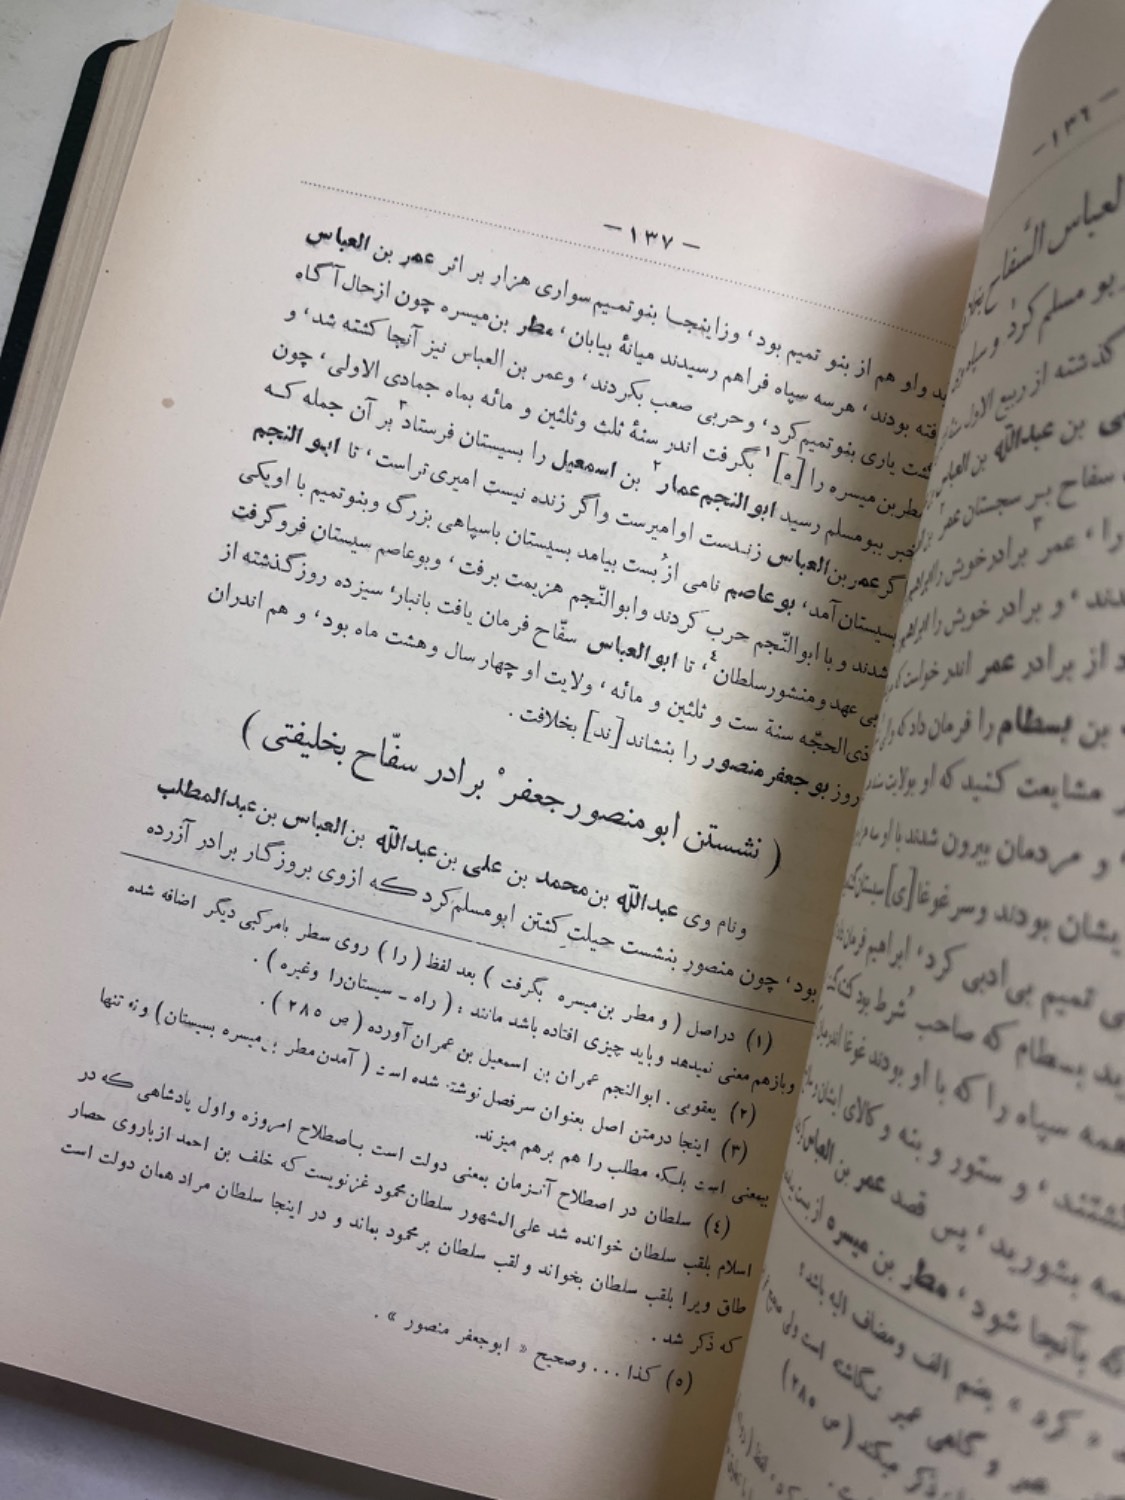 – ۱۳۷ –
ید واو هم از بنو تمیم بود، وزاینجا بنوتمیم سواری هزار بر اثر عمر بن العباس
فته بودند، هرسه سپاه فراهم رسیدند میانهٔ بیابان، مطر بن‌میسره چون ازحال آگاه
گشت یاری بنوتمیم کرد، وحربی صعب بکردند، وعمر بن العباس نیز آنجا کشته شد، و
مطربن میسره را [ه]۱ بگرفت اندر سنهٔ ثلث وثلثین و مائه بماه جمادی الاولی، چون
خبر ببومسلم رسید ابوالنجم‌عمار۲ بن اسمعیل را بسیستان فرستاد۳ بر آن جمله کـه
گر عمربن‌العباس زنـدست او امیرست واگر زنده نیست امیری تراست، تا ابو النجم
بسیستان آمد، بوعاصم نامی از بُست بیامد بسیستان باسپاهی بزرگ وبنوتمیم با اویکی
شدند و با ابوالنّجم حرب کردند وابوالنّجم هزیمت برفت، وبوعاصم سیستان فروگرفت
بی عهد ومنشورسلطان۴، تا ابوالعباس سفّاح فرمان یافت بانبار، سیزده روزگذشته از
ذی‌الحجّه سنة ست و ثلثین و مائه، ولایت او چهار سال وهشت ماه بود، و هم اندران
روز بوجعفر منصور را بنشاند [ند] بخلافت.
( نشستن ابو منصور جعفر۵ برادر سفّاح بخلیفتی )
ونام وی عبداللّٰه بن‌محمد بن علی بن‌عبداللّٰه بن‌العباس بن‌عبدالمطلب
بود، چون منصور بنشست حیلتِ کشتن ابومسلم کرد کـه ازوی بروزگار برادر آزرده
(۱) دراصل ( و مطر بن‌میسره بگرفت ) بعد لفظ ( را ) روی سطر بامرکبی دیگر اضافه شده
وبازهم معنی نمیدهد وباید چیزی افتاده باشد مانند : ( راه ـ سیستان‌را وغیره ) .
(۲) یعقوبی . ابوالنجم عمران بن اسمعیل بن عمران آورده ( ص ۲۸۵ ) .
(۳) اینجا درمتن اصل بعنوان سرفصل نوشته شده است ( آمدن مطر بن‌میسره بسیستان) ونه تنها
بیمعنی است بلـکه مطلب را هم برهم میزند.
(۴) سلطان در اصطلاح آنـزمان بمعنی دولت است بـاصطلاح امروزه واول پادشاهی کـه در
اسلام بلقب سلطان خوانده شد علی‌المشهور سلطان‌محمود غزنویست که خلف بن احمد ازباروی حصار
طاق ویرا بلقب سلطان بخواند و لقب سلطان برمحمود بماند و در اینجا سلطان مراد همان دولت است
که ذکر شد .
(۵) کذا ... وصحیح « ابوجعفر منصور » .
– ۱۳۶ –
لعباس السّفاح
بو مسلم کرد و سپاه
گذشته از ربیع الاول
ی بن عبداللّٰه بن العباس
سفاح بر سجستان عمر
را، عمر۳ برادرخویش را ابراهیم
دند، و برادر خویش را ابراهیم
د از برادر عمر اندر خواست که
بن بسطام را فرمان داد که
ر مشایعت کنید که او بولایت
، و مردمان بیرون شدند با او
یشان بودند وسر غوغا [ی] سیستان
ی تمیم بی‌ادبی کرد، ابراهیم فرمان
ید بسطام که صاحب شُرط بود
همه سپاه را که با او بودند غوغا
کشتند، و ستور و بنه و کالای ایشان
مه بشورید، پس قصد عمر بن العباس
که بآنجا شود، مطر بن میسره از
« کرد » بضم الف ومضاف الیه باشد؟
و گاهی عمر نگاشته است ولی صحیح
ذکر میکند ( ص ۲۸۵ )